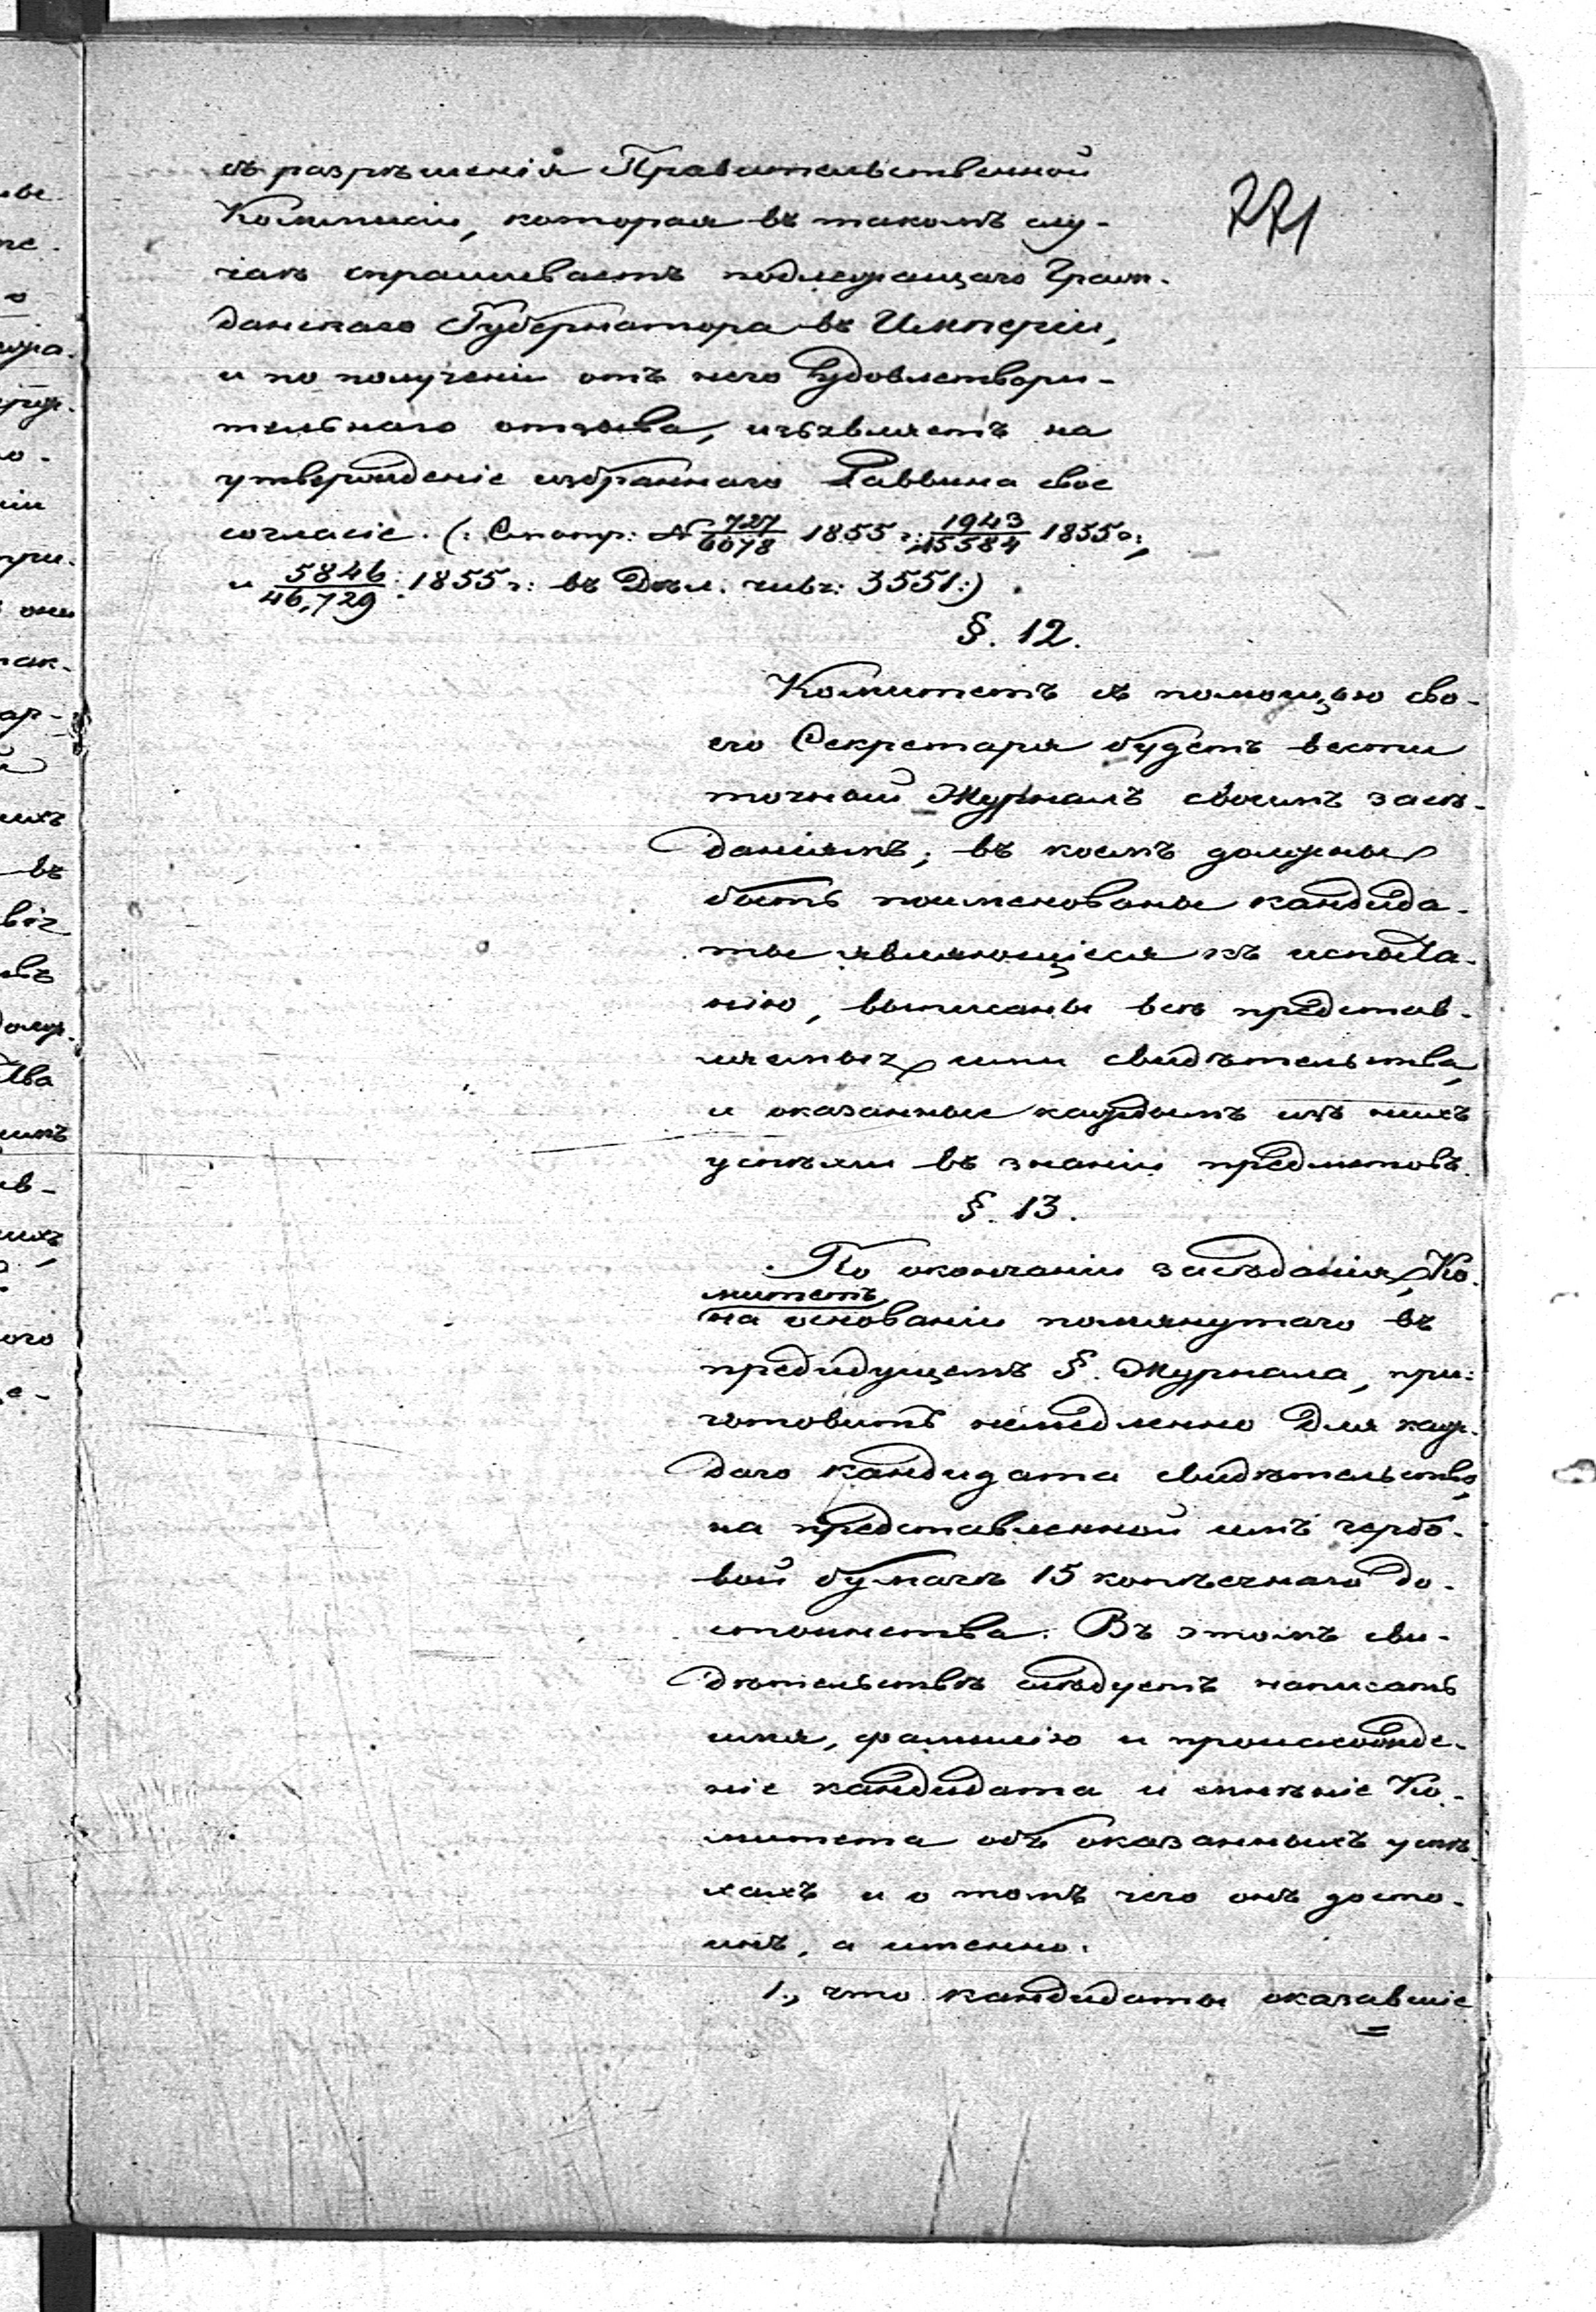 271
съ разрѣшенія Правительственной
Коммисіи, которая въ такомъ слу-
чаѣ спрашиваетъ подлежащаго Граж-
данскаго Губернатора въ Имперіи,
и по полученіи отъ него удовлетвори-
тельнаго отзыва, изъявляетъ на
утвержденіе избраннаго Раввина свое
согласіе. (: Смотр: № 727/6078 1855 г: 1943/15584 1855 г:,
и 5846/46,729 : 1855 г: въ Дѣл. 3551:).
§. 12.
Комитетъ съ помощью сво-
его Секретаря будетъ вести
точный Журналъ своимъ засѣ-
даніямъ; въ коемъ должны
быть поименованы кандида-
ты являющіеся къ испыта-
нію, выписаны всѣ представ-
ляемыя ими свидѣтельства,
и оказанные каждымъ изъ нихъ
успѣхи въ знаніи предметовъ.
§. 13.
По окончаніи засѣданія, Ко-
митетъ,
на основаніи помянутаго въ
предидущемъ §. Журнала, при-
готовитъ немедленно для каж-
даго кандидата свидѣтельство,
на представленной имъ гербо-
вой бумагѣ 15 копѣечнаго до-
стоинства. Въ этомъ сви-
дѣтельствѣ слѣдуетъ написать
имя, фамилію и происхожде-
ніе кандидата и мнѣніе Ко-
митета объ оказанныхъ успѣ-
хахъ и о томъ чего онъ досто-
инъ, а именно:
1., что кандидаты оказавшіе